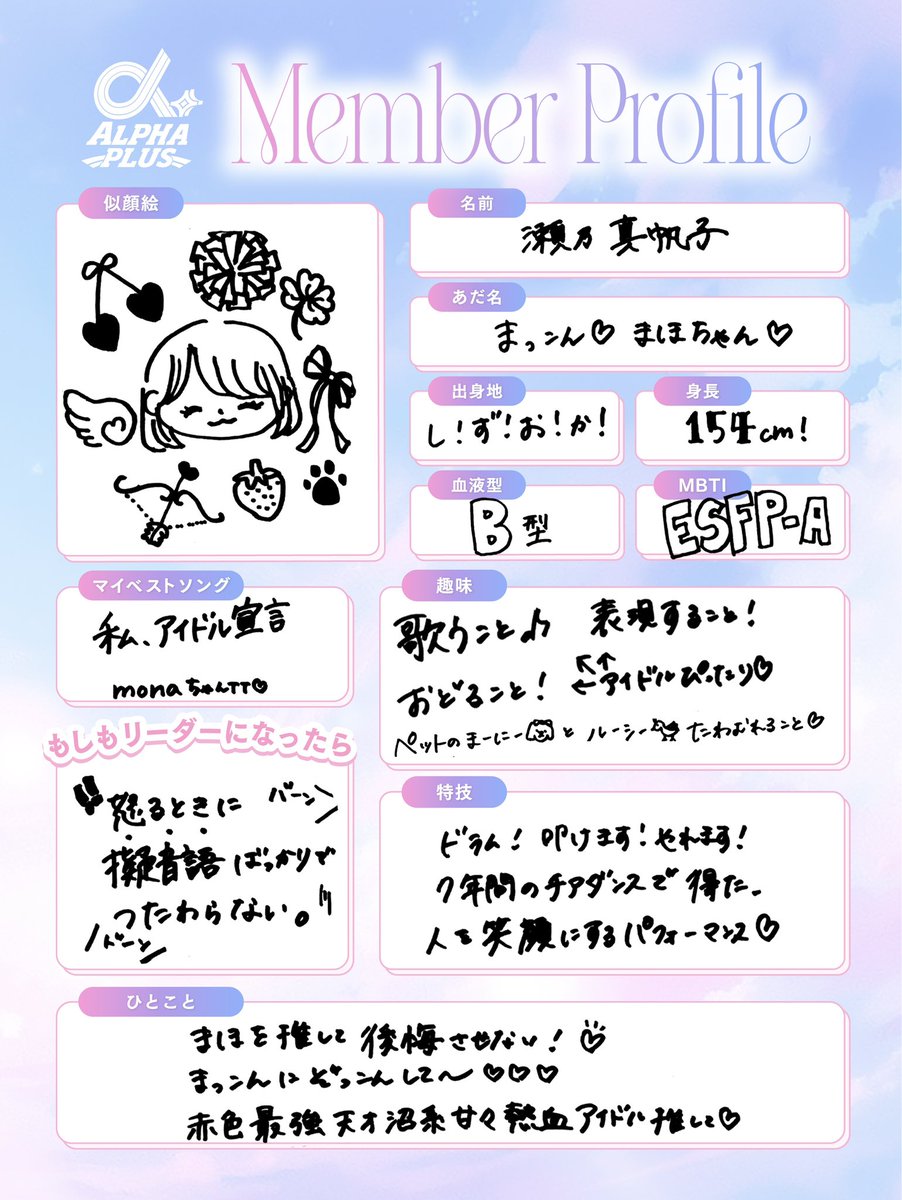 ALPHA
PLUS
Member Profile
似顔絵
名前
瀬乃 真帆子
あだ名
まっこん♡ まほちゃん♡
出身地
し!ず!お!か!
身長
154cm!
血液型
B型
MBTI
ESFP-A
マイベストソング
私、アイドル宣言
monaちゃんTT♡
趣味
歌うこと♪ 表現すること!
おどること! アイドルぴったり♡
ペットのまーにーとルーシーたわむれること♡
もしもリーダーになったら
!!怒るときに バーン
擬音語ばっかりで
つたわらない。
ドーン
特技
ドラム!叩けます!やれます!
7年間のチアダンスで得た、
人を笑顔にするパフォーマンス♡
ひとこと
まほを推して後悔させない!
まっこんにぞっこんして〜♡♡♡
赤色最強天才沼系甘々熱血アイドル推して♡